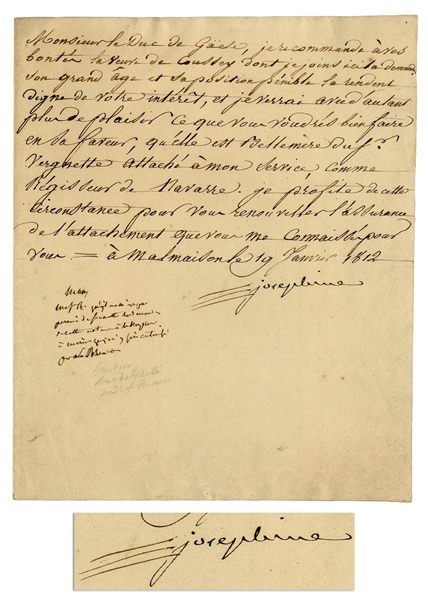 Monsieur le Duc de Gäete, je recommande à vos
bontés la veuve de Coussey dont je joins ici la demande
son grand âge et sa position pénible la rendent
digne de votre intérêt, et je verrai avec d'autant
plus de plaisir ce que vous voudrés bien faire
en sa faveur, qu'elle est Bellemère du Sr.
Vergnette attaché à mon service, comme
Régisseur de Navarre. je profite de cette
circonstance pour vous renouveller l'assurance
de l'attachement que vous me connaissés pour
vous = à Malmaison le 19 Janvier 1812
josephine
josephine